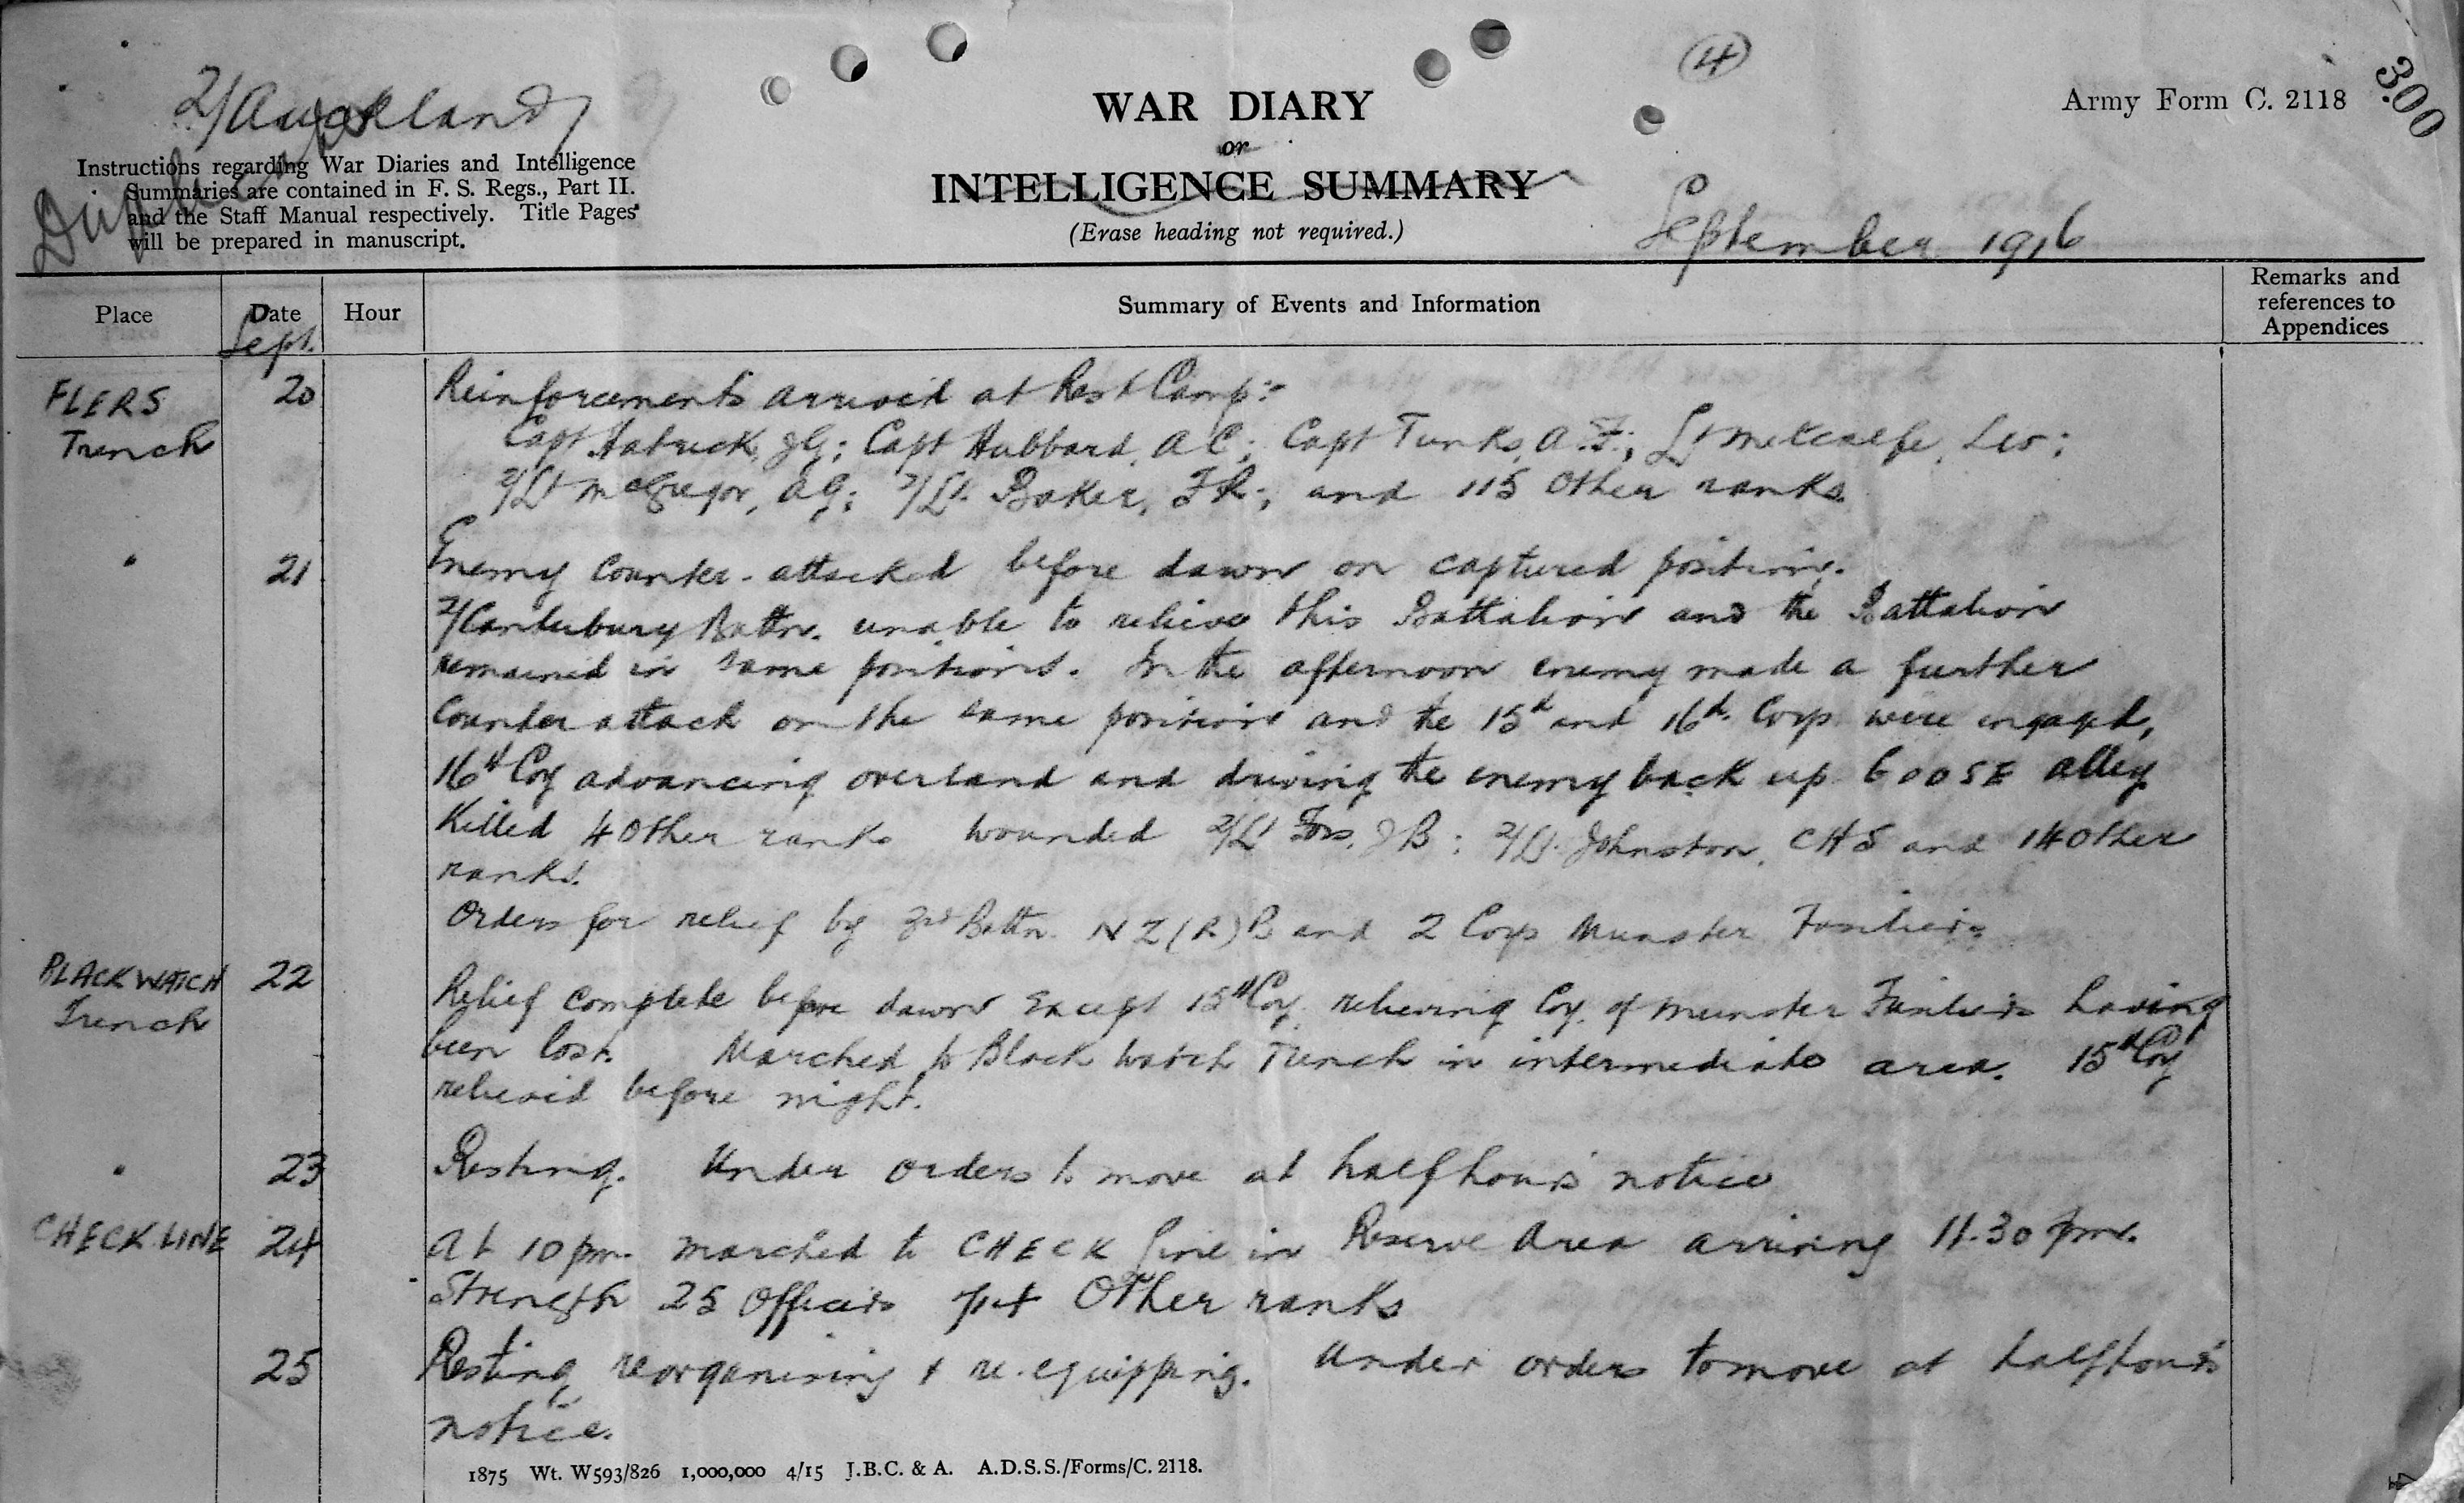 2/Auckland
Duplicate
Instructions regarding War Diaries and Intelligence
Summaries are contained in F. S. Regs., Part II.
and the Staff Manual respectively. Title Pages
will be prepared in manuscript.
WAR DIARY
or
INTELLIGENCE SUMMARY
(Erase heading not required.)
4
Army Form C. 2118
300
September 1916
Place
Date
Sept.
Hour
Summary of Events and Information
Remarks and
references to
Appendices
FLERS 20 Reinforcements arrived at Rest Camp:-
Trench Capt Hatrick, JG; Capt Hubbard, AC; Capt Tunks, A.; Lt Metcalfe, Leo;
2/Lt McGregor, AG; 2/Lt. Baker, FR; and 115 Other ranks.
" 21 Enemy counter-attacked before dawn on captured positions.
2/Canterbury Battn. unable to relieve this Battalion and the Battalion
remained in same positions. In the afternoon enemy made a further
counter attack on the same positions and the 15th and 16th Coys were engaged,
16th Coy advancing overland and driving the enemy back up GOOSE alley
Killed 4 Other ranks wounded 2/Lt JB; 2/Lt. Johnston, CHS and 14 Other
ranks.
Orders for relief by 3rd Battn. NZ(R)B and 2 Coys Munster Fusiliers
BLACKWATCH 22 Relief complete before dawn except 15th Coy. relieving Coy. of Munster Fusiliers having
Trench been lost. Marched to Black Watch Trench in intermediate area. 15th Coy
relieved before night.
" 23 Resting. Under orders to move at half hour's notice
CHECK LINE 24 At 10 pm. marched to CHECK Line in Reserve Area arriving 11.30 pm.
Strength 25 Officers 714 Other ranks
25 Resting reorganising & re-equipping. Under orders to move at half hour's
notice.
1875 Wt. W593/826 1,000,000 4/15 J.B.C. & A. A.D.S.S./Forms/C. 2118.